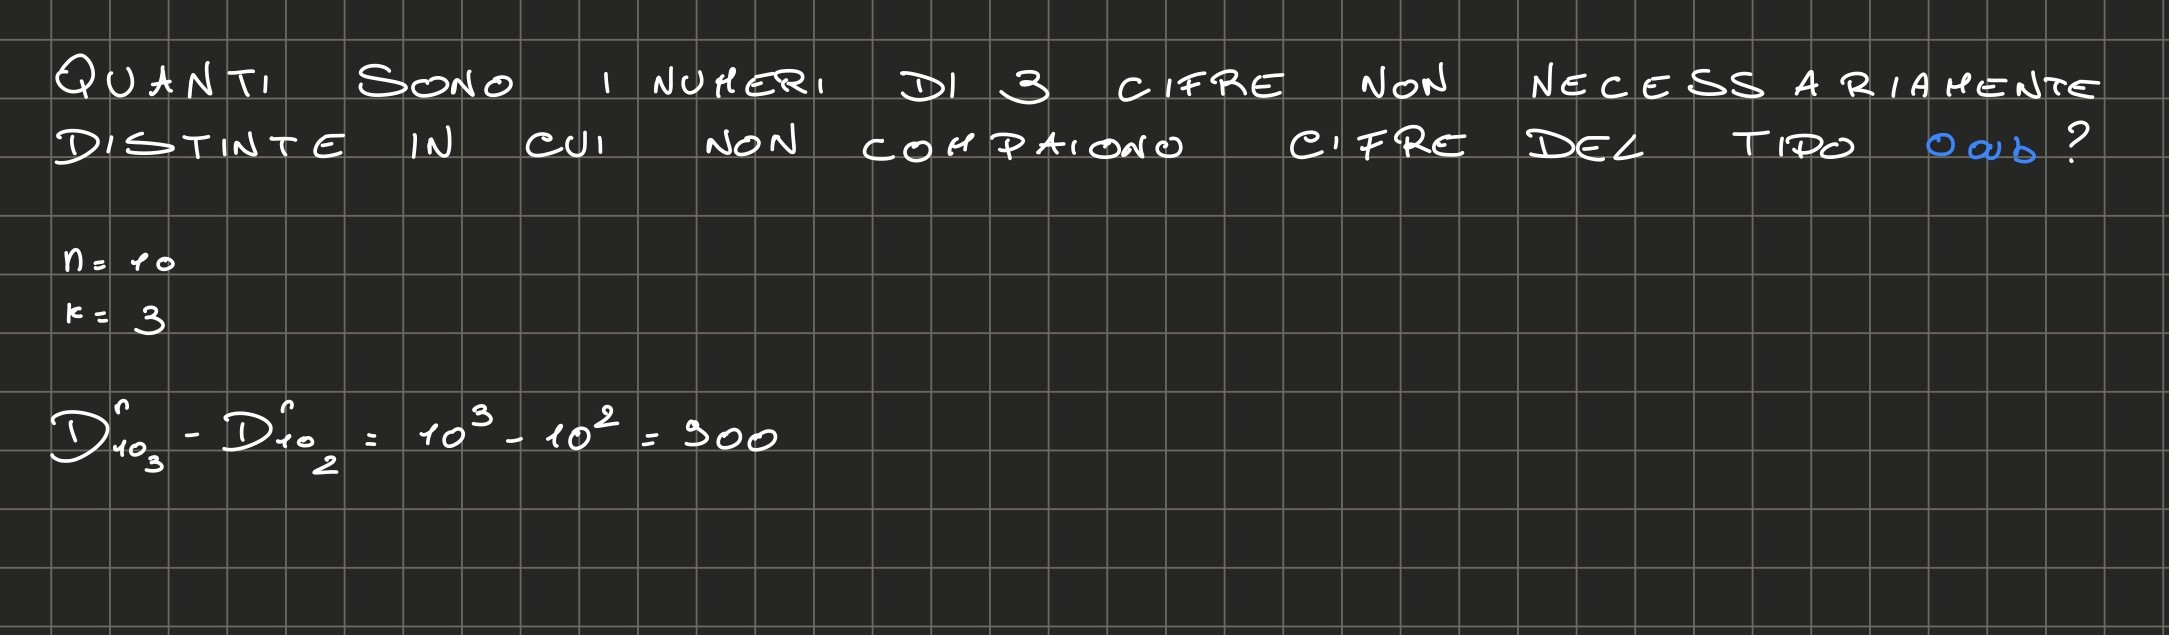 QUANTI SONO I NUMERI DI 3 CIFRE NON NECESSARIAMENTE
DISTINTE IN CUI NON COMPAIONO CIFRE DEL TIPO 0ab?
n= 10
k= 3
D^r_10_3 - D^r_10_2 = 10^3 - 10^2 = 900